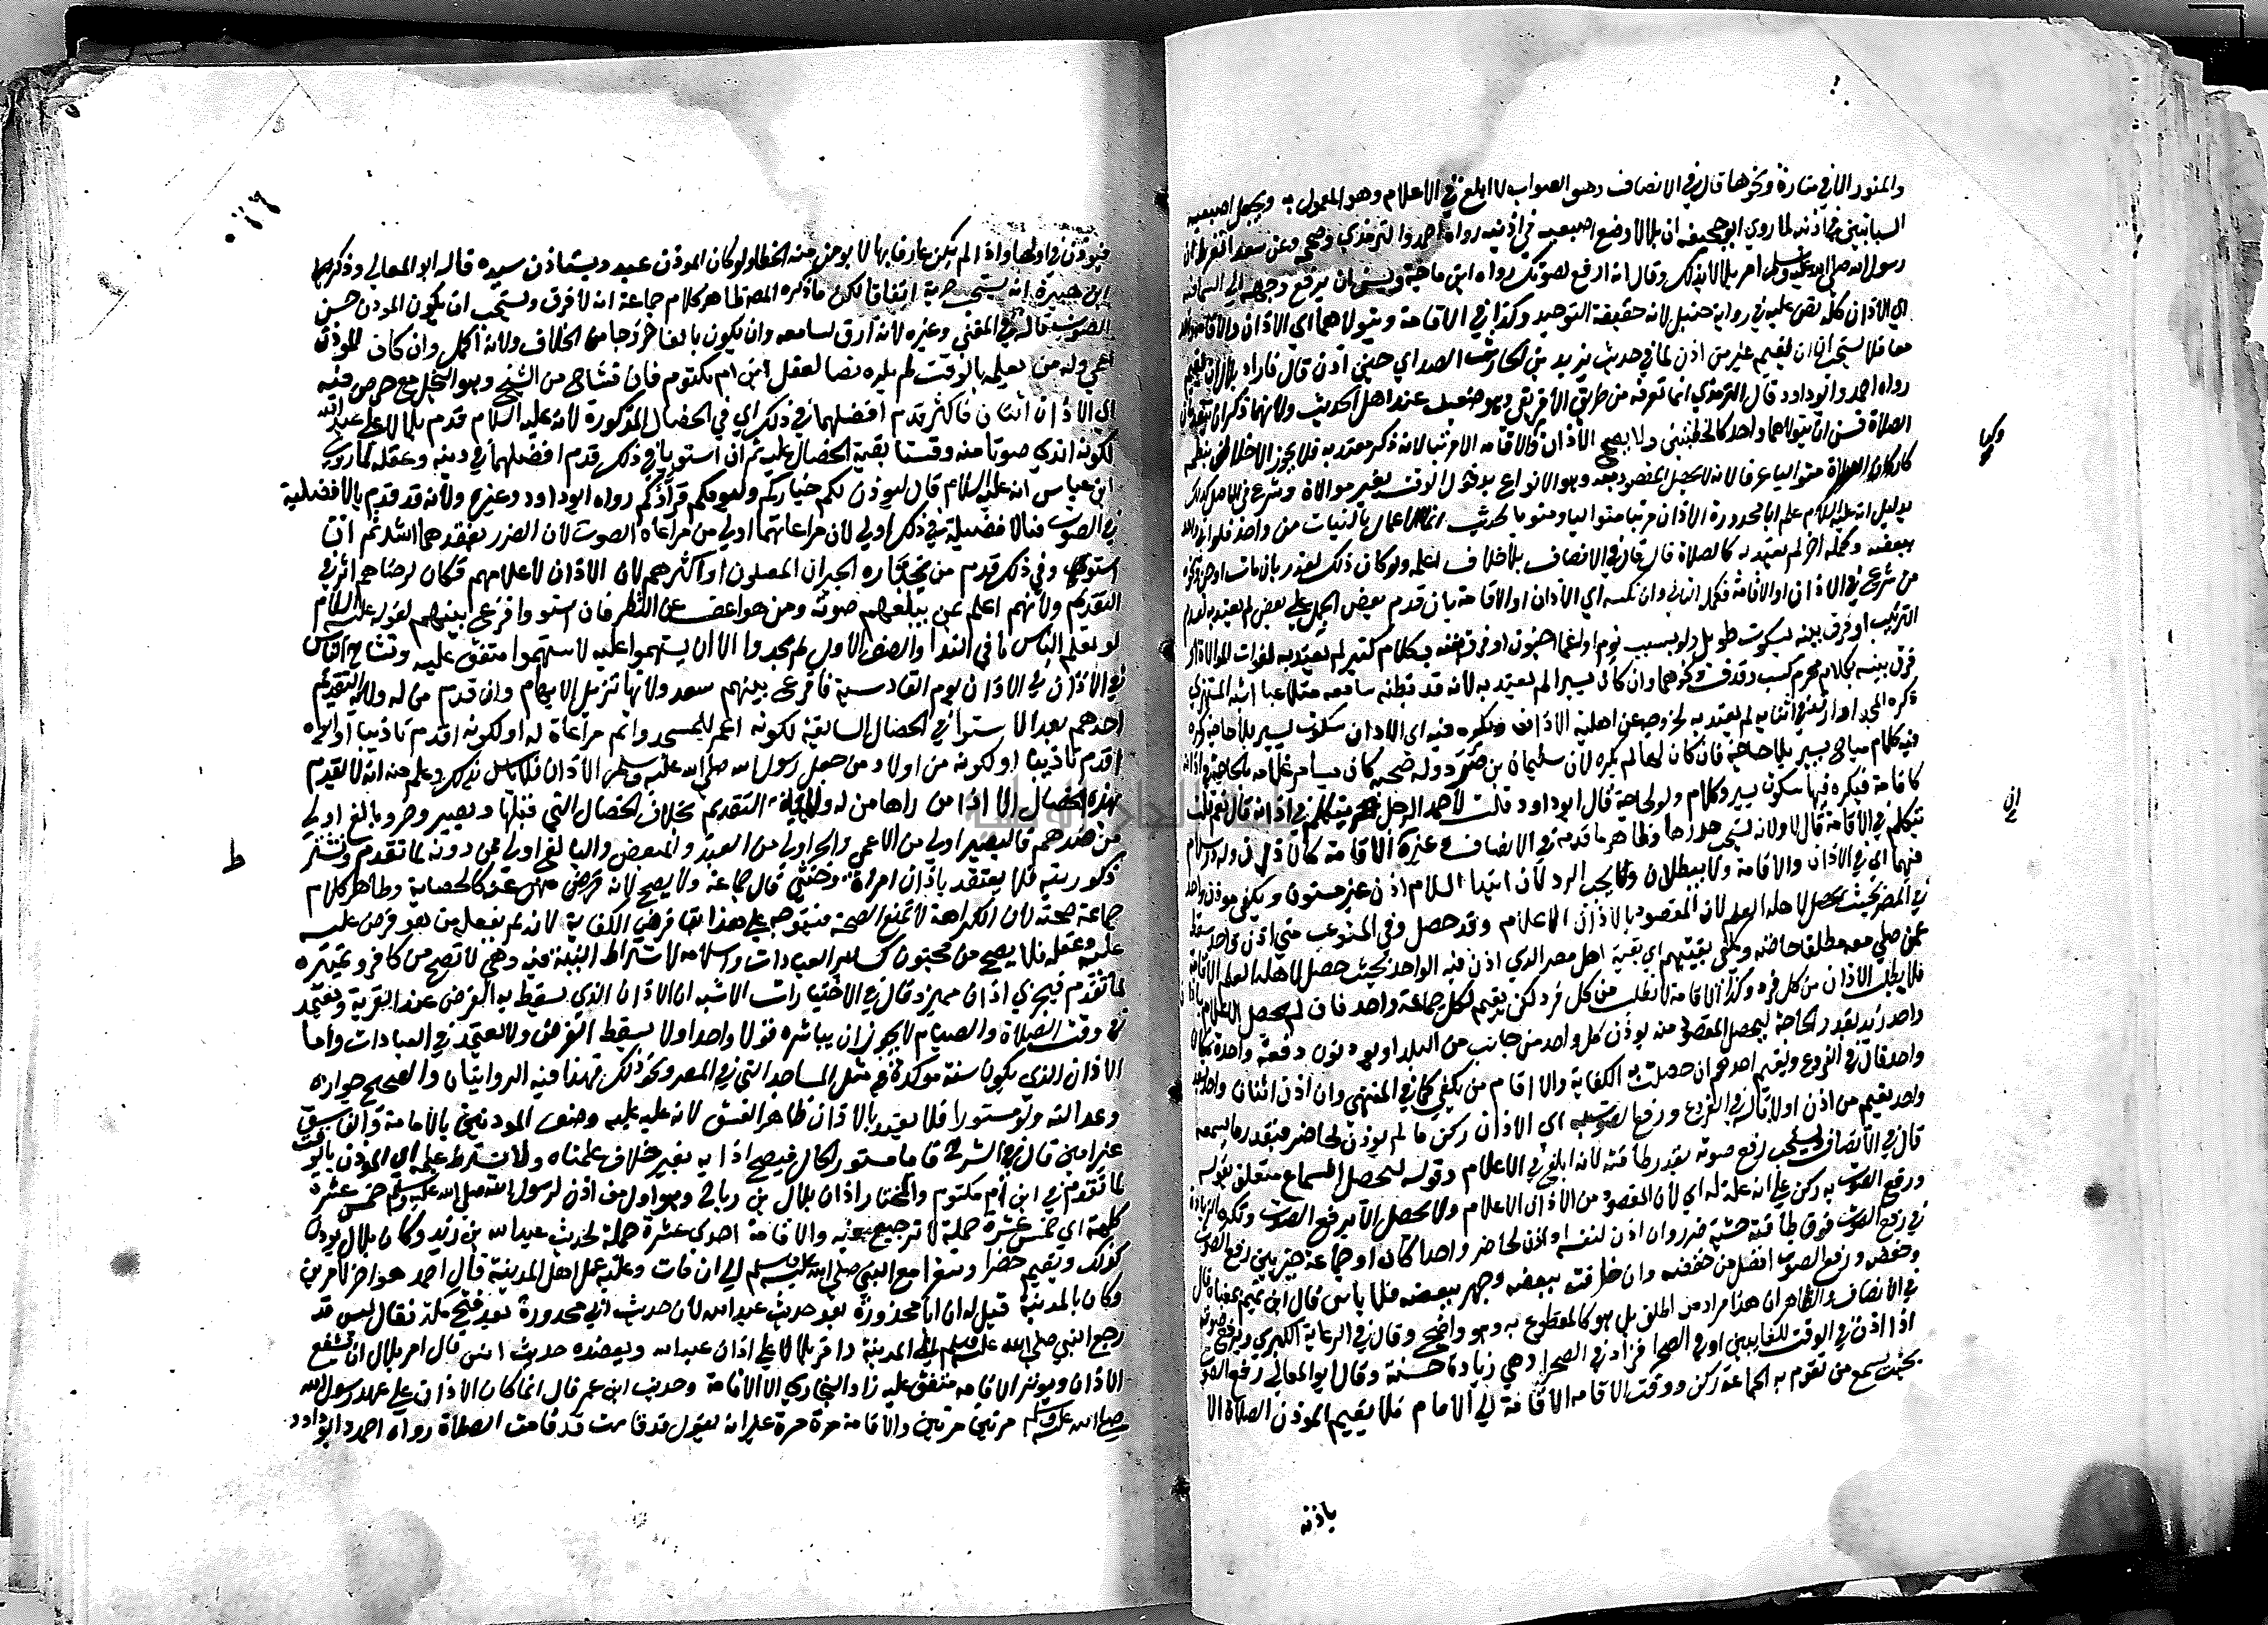 والمنور الا في منارة ونحوها قال في الانصاف وهو الصواب لا ابلغ في الاعلام وهو المعمول به ويجعل اصبعيه
السبابتين في اذنيه لما روي ابو جحيفه ان بلالا وضع اصبعيه في اذنيه رواه احمد والترمذي وصححه وعن سعد القرظ ان
رسول الله صلى الله عليه وسلم امر بلالا بذلك وقال انه ارفع لصوتك رواه ابن ماجة ويسن ان يرفع وجهه الي السما فيه
اي الاذان كله نص عليه في رواية حنبل لانه حقيقة التوحيد وكذا في الاقامة ويتولاهما اي الاذان والاقامة واحد
معا فلا يستحب ان يقيم غير من اذن لما في حديث زياد بن الحارث الصدائي حين اذن قال فاراد بلال ان يقيم
رواه احمد وابو داود قال الترمذي انما نعرفه من طريق الافريقي وهو ضعيف عند اهل الحديث ولانهما ذكران يتقدمان
الصلاة فسن ان يتولاهما واحد كالخطبتين ولا يصح الاذان والاقامه الا مرتبا لانه ذكر معتد به فلا يجوز الاخلال بنظمه
كاركان الصلاة متواليا عرفا لانه لا يحصل المقصود منه وهو الاعلام بدخول الوقت بغير موالاة وشرع في الاصل كذلك
بدليل انه عليه السلام علم ابا محذورة الاذان مرتبا متواليا ومنويا لحديث انما الاعمال بالنيات من واحد فلو اتي واحد
ببعضه وكمله اخر لم يعتد به كالصلاة قال في الانصاف بلا خلاف اعلمه ولو كان ذلك لعذر بان مات او جن ونحوه
من شرع في الاذان او الاقامة فكمل الثاني وان نكسه اي الاذان او الاقامة بان قدم بعض الجمل علي بعض لم يعتد به لعدم
الترتيب او فرق بينه بسكوت طويل ولو بسبب نوم او اغما او جنون او فرق بينه بكلام كثير لم يعتد به لفوات الموالاة او
فرق بينه بكلام محرم كسب وقذف ونحوهما وان كان يسيرا لم يعتد به لانه قد يظنه سامعه متلاعبا اشبه المستهزي
ذكره المجد او ارتد في اثنايه لم يعتد به لخروجه عن اهلية الاذان ويكره فيه اي الاذان سكوت يسير بلا حاجة وكره
فيه كلام مباح يسير بلا حاجة فان كان لها لم يكره لان سليمان بن صرد وله صحبه كان يامر غلامه بالحاجة في اذانه
كاقامة فيكره فيها سكوت يسير وكلام ولو لحاجة قال ابو داود قلت لاحمد الرجل يتكلم في اذانه قال نعم قلت
يتكلم في الاقامة قال لا ولانه يستحب حدرها وظاهر ما قدمه في الانصاف وغيره الاقامة كالاذان وله رد سلام
فيهما اي في الاذان والاقامة ولا يبطلان ولا يجب الرد لان ابتدا السلام اذن غير مسنون ويكفي موذن واحد
في المصر بحيث يحصل لاهله العلم لان المقصود بالاذان الاعلام وقد حصل وفي المستوعب متي اذن واحد سقط
عمن صلي معه مطلقا خاصة ويكفي بقيتهم اي بقية اهل مصر الذي اذن فيه الواحد بحيث حصل لاهله العلم الاقامة
فلا يطلب الاذان من كل فرد وكذا الاقامة لا تطلب من كل فرد لكن يقيم لكل جماعة واحد فان لم يحصل الاعلام باذان
واحد زيد بقدر الحاجة ليحصل المقصود منه يوذن كل واحد من جانب من البلد او يوذنون دفعة واحدة بمكان
واحد قال في الفروع ويقيم احدهم ان حصلت به الكفاية والا اقام من يكفي كما في المنتهي وان اذن اثنان واحد بعد
واحد يقيم من اذن اولا قال في الفروع ورفع الصوت به اي الاذان ركن ما لم يوذن لحاضر فبقدر ما يسمعه
قال في الانصاف يستحب رفع صوته بقدر طاقته لانه ابلغ في الاعلام وقوله ليحصل السماع متعلق بقوله
ورفع الصوت به ركن علي انه علة له اي لان المقصود من الاذان الاعلام ولا يحصل الا برفع الصوت وتكره الزيادة
في رفع الصوت فوق طاقته خشية ضرر وان اذن لنفسه او اذن لحاضر واحدا كان او جماعة خير بين رفع الصوت
وخفضه ورفع الصوت افضل من خفضه وان خافت ببعضه وجهر ببعضه فلا باس قال ابن تميم بمعناه قال
في الانصاف والظاهر ان هذا مراد من اطلق بل هو كالمقطوع به وهو واضح وقال في الرعاية الكبري ويرفع صوته
اذا اذن في الوقت للغايبين او في الصحرا فزاد في الصحرا وهي زيادة حسنة وقال ابو المعالي رفع الصوت
بحيث يسمع من تقوم به الجماعة ركن ووقت الاقامه الاقامة الي الامام فلا يقيم الموذن الصلاة الا
باذنه
فيوذن في اولها واذا لم يكن عارفا بها لا يومن منه الخطا ولو كان الموذن عبدا ويستاذن سيده قاله ابو المعالي وذكر
ابن هبيرة انه يستحب حريته اتفاقا لكن ما ذكره المص ظاهر كلام جماعة انه لا فرق ويستحب ان يكون الموذن حسن
الصوت قاله في المغني وغيره لانه ارق لسامعه وان يكون بالغا خروجا من الخلاف ولانه اكمل وان كان الموذن
اعمي وله من يعلمه بالوقت لم يكره نصا لفعل ابن ام مكتوم فان تشاح من الشح وهو البخل مع حرص فيه
اي الاذان اثنان فاكثر قدم افضلهما في ذلك اي في الخصال المذكورة لانه عليه السلام قدم بلالا علي عبد الله
لكونه اندي صوتا منه وقسنا بقية الخصال عليه ثم ان استويا في ذلك قدم افضلهما في دينه وعقله لما روي
ابن عباس انه عليه السلام قال ليوذن لكم خياركم وليومكم قراؤكم رواه ابو داود وغيره ولانه قد قدم بالافضلية
في الصوت فبالافضلية في ذلك اولي لان مراعاتهما اولي من مراعاة الصوت لان الضرر بفقدهما اشد ثم ان
استووا وفي ذلك قدم من يختاره الجيران المصلون او اكثرهم لان الاذان لاعلامهم فكان لرضاهم اثر في
التقديم ولانهم اعلم بمن يبلغهم صوته ومن هو اعف عن النظر فان استووا اقرع بينهم لقوله عليه السلام
لو يعلم الناس ما في الندا والصف الاول ثم لم يجدوا الا ان يستهموا عليه لاستهموا متفق عليه وتشاح الناس
في الاذان يوم القادسية فاقرع بينهم سعد ولانها تزيل الابهام وان قدم من له ولاية التقديم
احدهم بعد الاستوا في الخصال السابقة لكونه اعمر للمسجد واتم مراعاة له او لكونه اقدم تاذينا او ابوه
اقدم تاذينا او لكونه من اولاد من جعل رسول الله صلى الله عليه وسلم الاذان فلا باس بذلك وعلم منه انه لا يقدم
بهذه الخصال الا اذا راها من له ولاية التقديم بخلاف الخصال التي قبلها وبصير وحر وبالغ اولي
من ضدهم فالبصير اولي من الاعمي والحر اولي من العبد والمبعض والبالغ اولي ممن دونه لما تقدم وتشترط
ذكوريته فلا يعتد باذان امراة وخنثي قال جماعة ولا يصح لانه كالحكاية وظاهر كلام
جماعة صحته لان الكراهة لا تمنع الصحة فيتوجه علي هذا بقا فرض الكفاية لانه لم يفعله من هو فرض عليه
وعقله فلا يصح من مجنون كساير العبادات واسلامه لاشتراط النية فيه وهي لا تصح من كافر وتمييزه
لما تقدم فيجزي اذان مميز وقال في الاختيارات الاشبه ان الاذان الذي يسقط به الفرض عند القرية ويعتمد
في وقت الصلاة والصيام لا يجوز ان يباشره قولا واحدا ولا يسقط الفرض ولا يعتمد في العبادات واما
الاذان الذي يكون سنة موكدة في مثل المساجد التي في المصر ونحو ذلك فهذا فيه الروايتان والصحيح جوازه
وعدالته ولو مستورا فلا يعتد بالاذان ظاهر الفسق لانه عليه وصف الموذنين بالامانة والفاسق
غير امين قال في الشرح فاما مستور الحال فيصح اذانه بغير خلاف علمناه ولا يشترط علمه اي الموذن بالوقت
لما تقدم في ابن ام مكتوم والمختار اذان بلال بن رباح وهو اول من اذن لرسول الله صلى الله عليه وسلم خمس عشرة
كلمة اي خمس عشرة جملة لا ترجيع فيه والاقامة احدي عشرة جملة لحديث عبد الله بن زيد وكان بلال يوذن
كذلك ويقيم حضرا وسفرا مع النبي صلى الله عليه وسلم الي ان مات وعليه عمل اهل المدينة قال احمد هو اخر الامرين
وكان بالمدينة قيل له ان ابا محذورة بعد حديث عبد الله لان حديث ابي محذورة بعد فتح مكة فقال ليس قد
رجع النبي صلى الله عليه وسلم الي المدينة واقر بلالا علي اذان عبد الله ويعضده حديث انس قال امر بلال ان يشفع
الاذان ويوتر الاقامه متفق عليه زاد البخاري الا الاقامة وحديث ابن عمر قال انما كان الاذان علي عهد رسول الله
صلى الله عليه وسلم مرتين مرتين والاقامة مرة مرة غير انه يقول قد قامت قد قامت الصلاة رواه احمد وابو داود